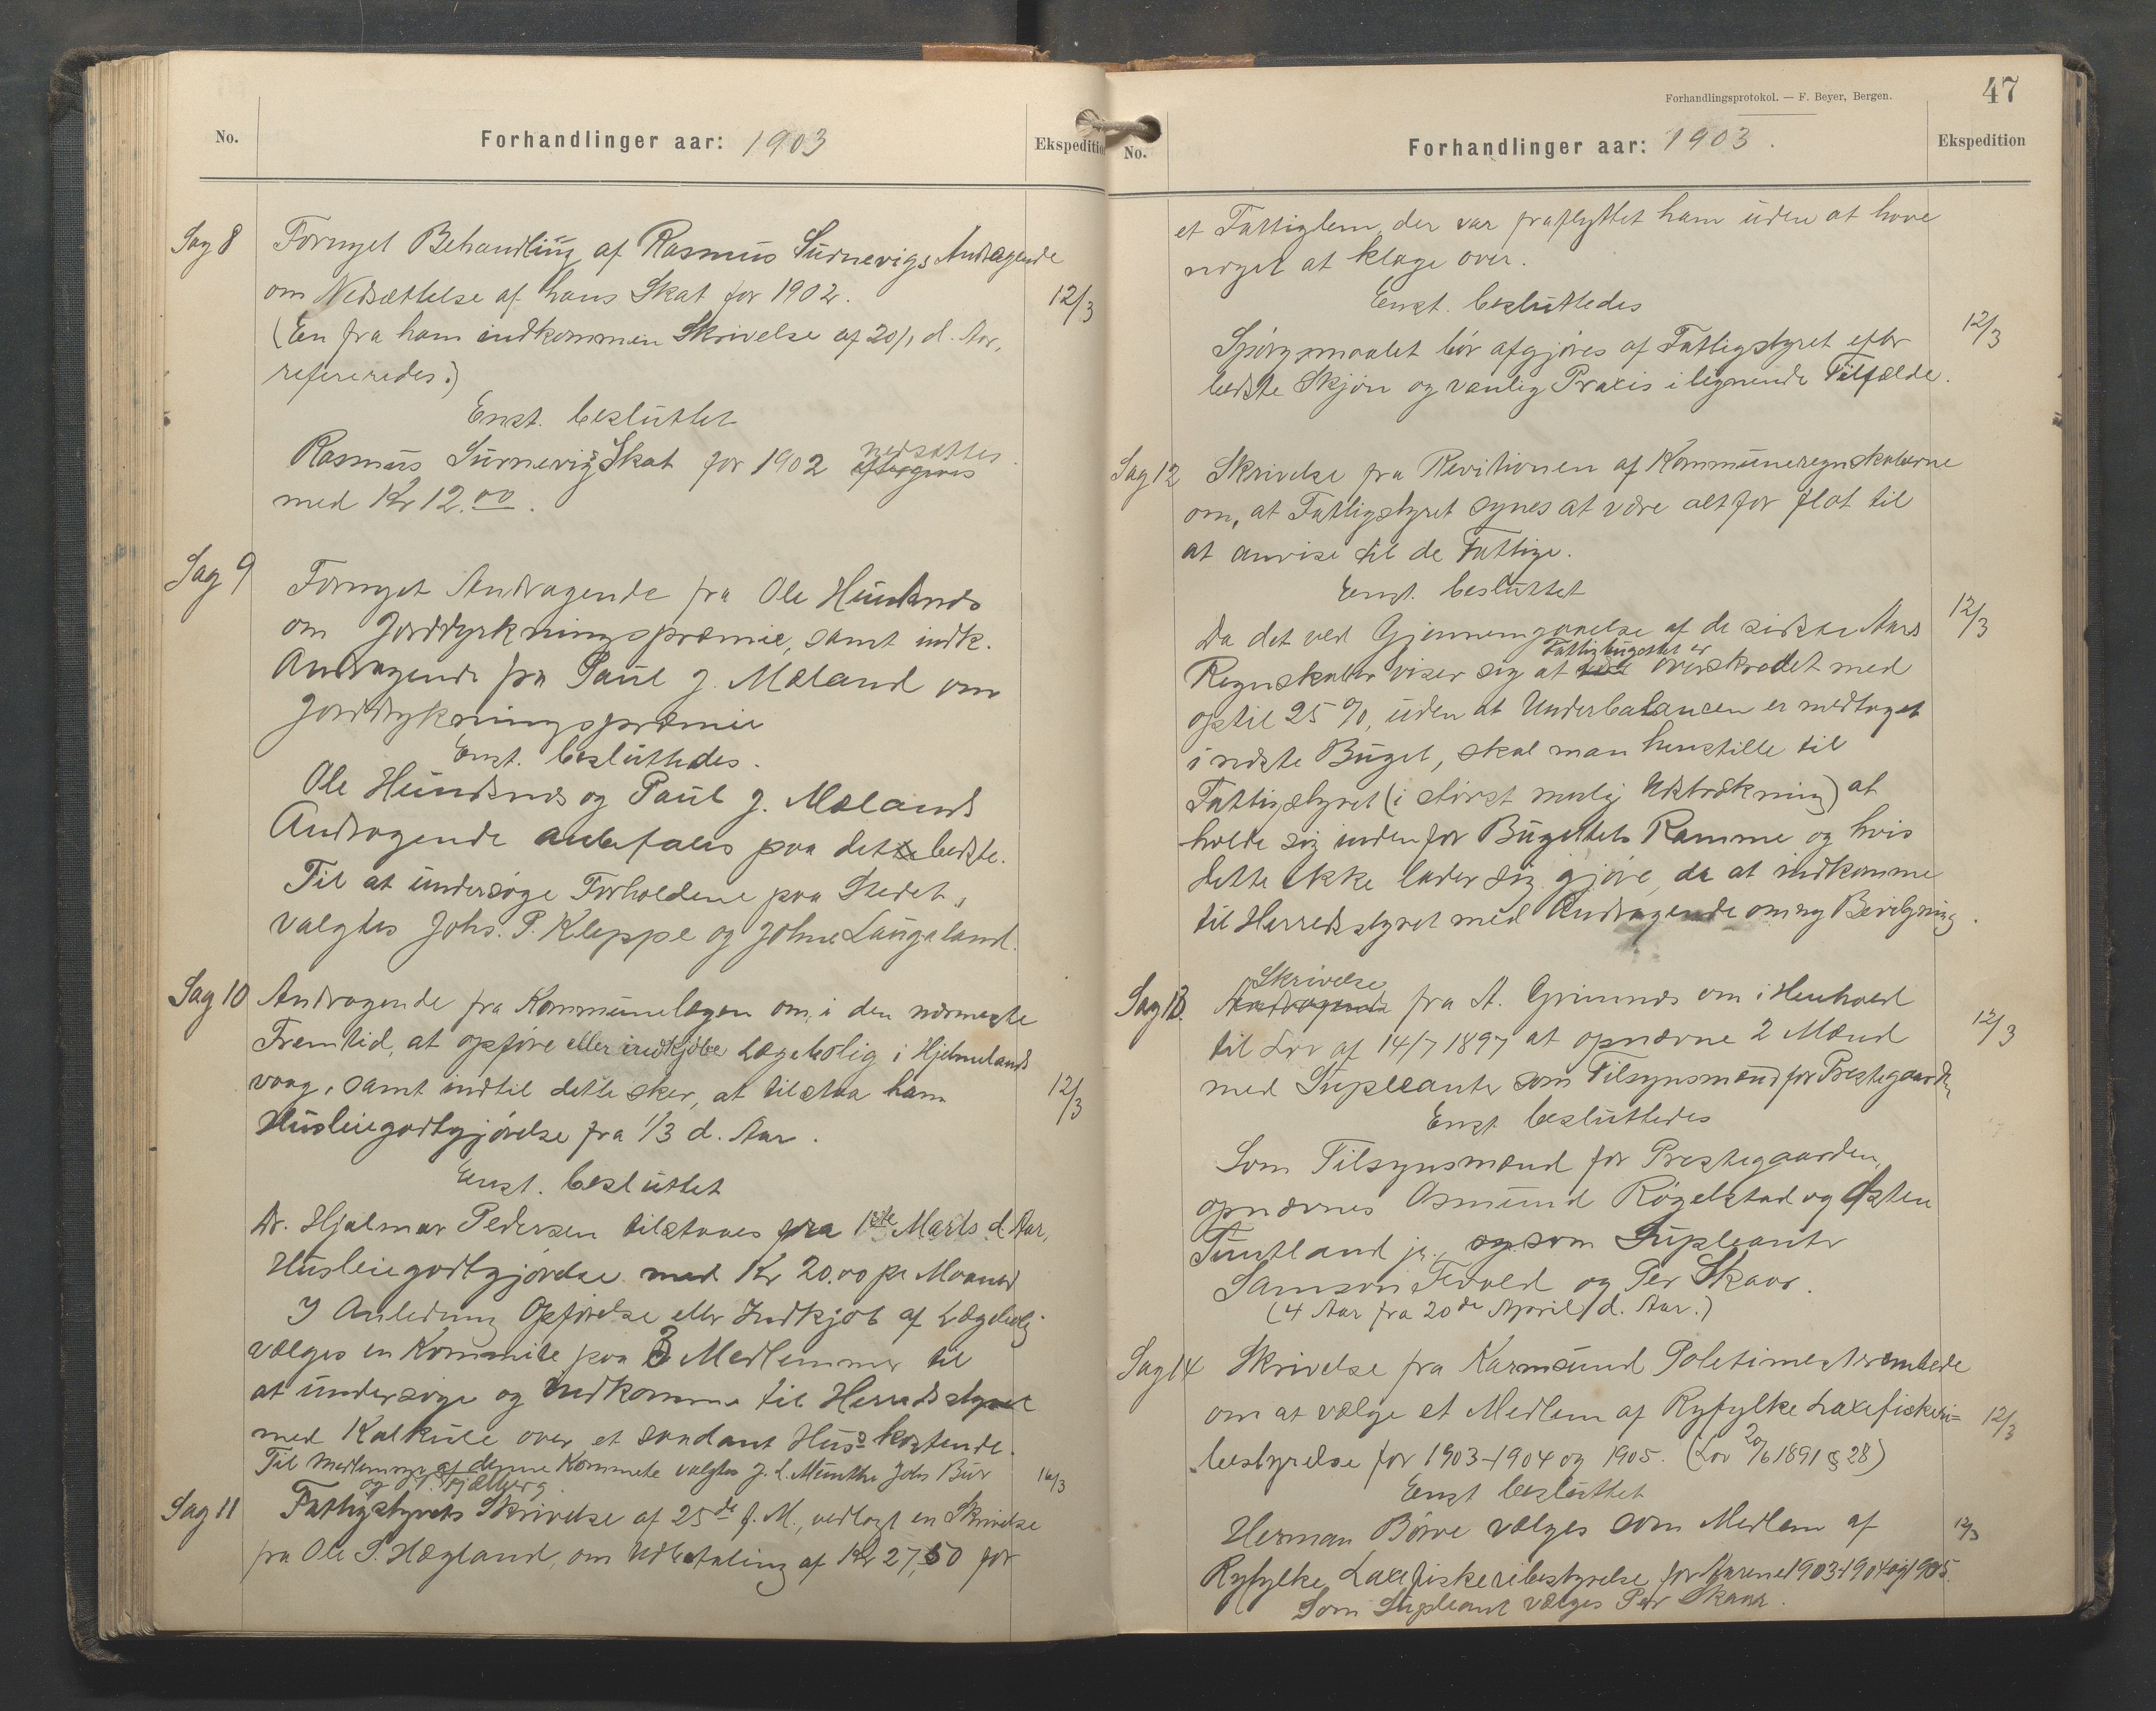 No.
Forhandlinger aar: 1903
Ekspedition
Sag 8
Fornyet Behandling af Rasmus Surnevigs Andragende
om Nedsættelse af hans Skat for 1902.
12/3
(En fra ham indkommen Skrivelse af 20/1 d. Aar,
refereredes.)
Enst. besluttet
Rasmus Surnevigs Skat for 1902 nedsættes
med Kr 12.00.
Sag 9
Fornyet Andragende fra Ole Hundsnes
om Jorddyrkningspræmie, samt indk.
Andragende fra Paul J. Mæland om
Jorddyrkningspræmie
Enst. besluttedes.
Ole Hundsnes og Paul J. Mælands
Andragende anbefales paa det bedste.
Til at undersøge Forholdene paa Stedet,
valgtes Johs. P. Kleppe og Johne Laugaland.
Sag 10
Andragende fra Kommunelægen om, i den nærmeste
Fremtid, at opføre eller indkjøbe Lægebolig i Hjelmelands
vaag, samt indtil dette sker, at tilstaa ham
12/3
Husleiegodtgjørelse fra 1/3 d. Aar.
Enst. besluttet
Dr. Hjalmar Pedersen tilstaaes fra 1ste Marts d. Aar,
Husleiegodtgjørelse med Kr 20.00 pr Maaned
I Anledning Opførelse eller Indkjøb af Lægebolig
vælges en Kommite paa 3 Medlemmer til
at undersøge og indkomme til Herredsstyret
med Kalkule over et saadant Hus's kostende.
Til Medlemmer af denne Kommite valgtes J. L. Munthe John Bur
og O. T. Fjælberg.
16/3
Sag 11
Fattigstyrets Skrivelse af 25de f. M., vedlagt en Skrivelse
fra Ole P. Hægland, om Udbetaling af Kr 27,50 for
Forhandlingsprotokol. — F. Beyer, Bergen.
47
No.
Forhandlinger aar: 1903.
Ekspedition
et Fattiglem, der var fraflyttet ham uden at have
noget at klage over.
Enst. besluttedes
Spørgsmaalet bør afgjøres af Fattigstyret efter
12/3
bedste Skjøn og vanlig Praxis i lignende Tilfælde.
Sag 12
Skrivelse fra Revitionen af Kommuneregnskaberne
om, at Fattigstyret synes at være altfor flot til
at anvise til de Fattige.
Enst. besluttet
Da det ved Gjennemgaaelse af de sidste Aars
12/3
Fattigbugettet er
Regnskaber viser sig at overskredet med
optil 25 %, uden at Underbalancen er medtaget
i nedste Buget, skal man henstille til
Fattigstyret (i størst mulig Udstrækning) at
holde sig inden for Bugettets Ramme og hvis
dette ikke lader sig gjøre, da at indkomme
til Herredsstyret med Andragende om ny Bevilgning.
Sag 13.
Skrivelse
Andragende fra A. Grimnes om i Henhold
12/3
til Lov af 14/7 1897 at opnævne 2 Mænd
med Supleanter som Tilsynsmænd for Præstegaarden
Enst besluttedes
Som Tilsynsmænd for Prestegaarden,
opnævnes Osmund Røgelstad og Østen
Tuntland jr., og som Supleanter
Samson Fevold og Per Skaar.
(4 Aar fra 20de April d. Aar.)
Sag 14
Skrivelse fra Karmsund Politimesterembede
om at vælge et Medlem af Ryfylke Laxefiskeri=
12/3
bestyrelse for 1903-1904 og 1905. (Lov 20/6 1891 § 28)
Enst besluttet
Herman Børve vælges som Medlem af
12/3
Ryfylke Laxefiskeribestyrelse for Aarene 1903-1904 og 1905.
Som Supleant vælges Per Skaar.